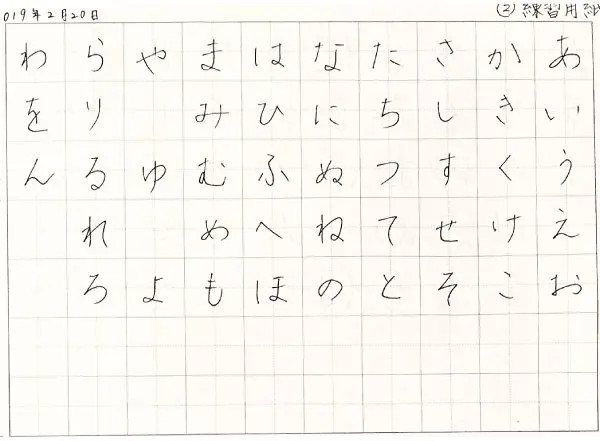 019年2月20日
②練習用紙
あいうえお
かきくけこ
さしすせそ
たちつてと
なにぬねの
はひふへほ
まみむめも
やゆよ
らりるれろ
わをん